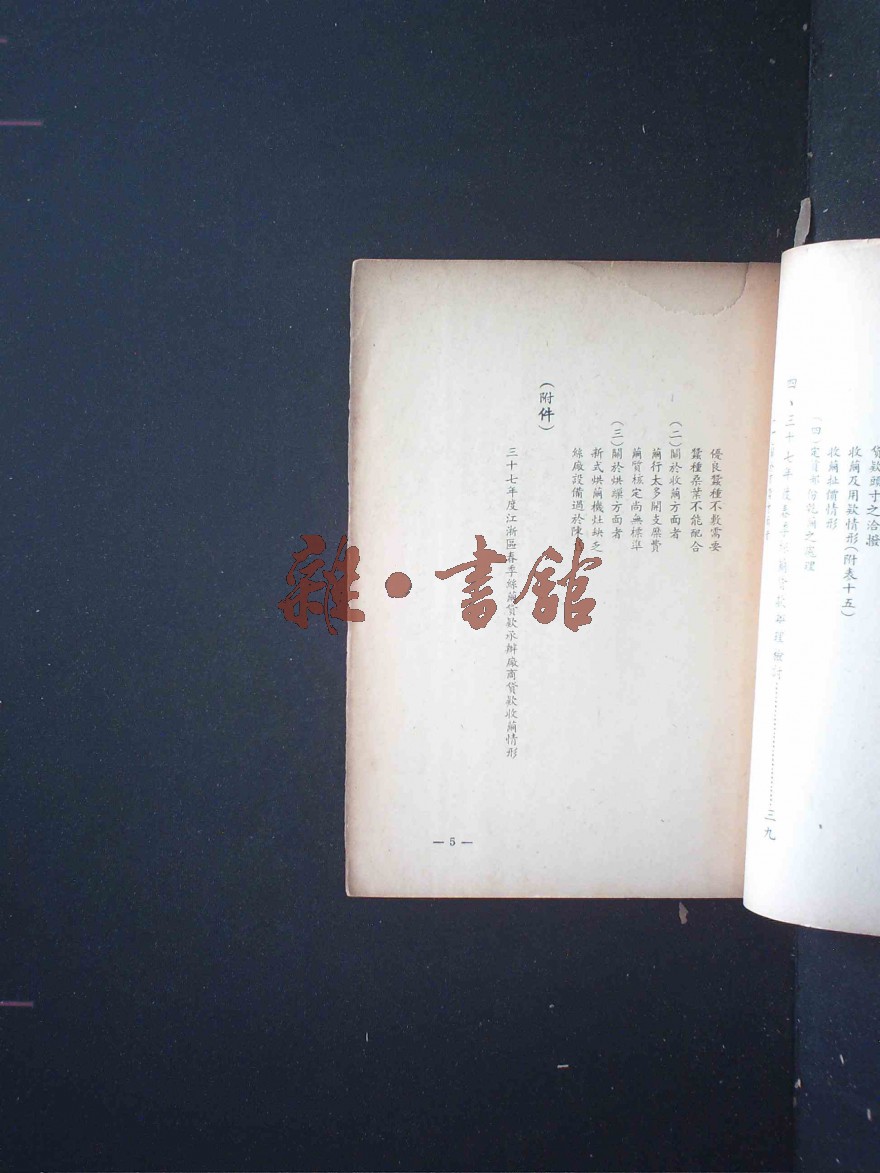 貸款頭寸之洽撥
收繭及用款情形(附表十五)
收繭扯價情形
四、三十七年度春季絲繭貸款辦理檢討……………三九
優良蠶種不敷需要
蠶種桑葉不能配合
(二)關於收繭方面者
繭行太多開支糜費
繭質核定尚無標準
(三)關於烘繰方面者
新式烘繭機灶缺乏
絲廠設備過於陳
(附件)
三十七年度江浙區春季絲繭貸款承辦廠商貸款收繭情形
— 5 —
雜·書館